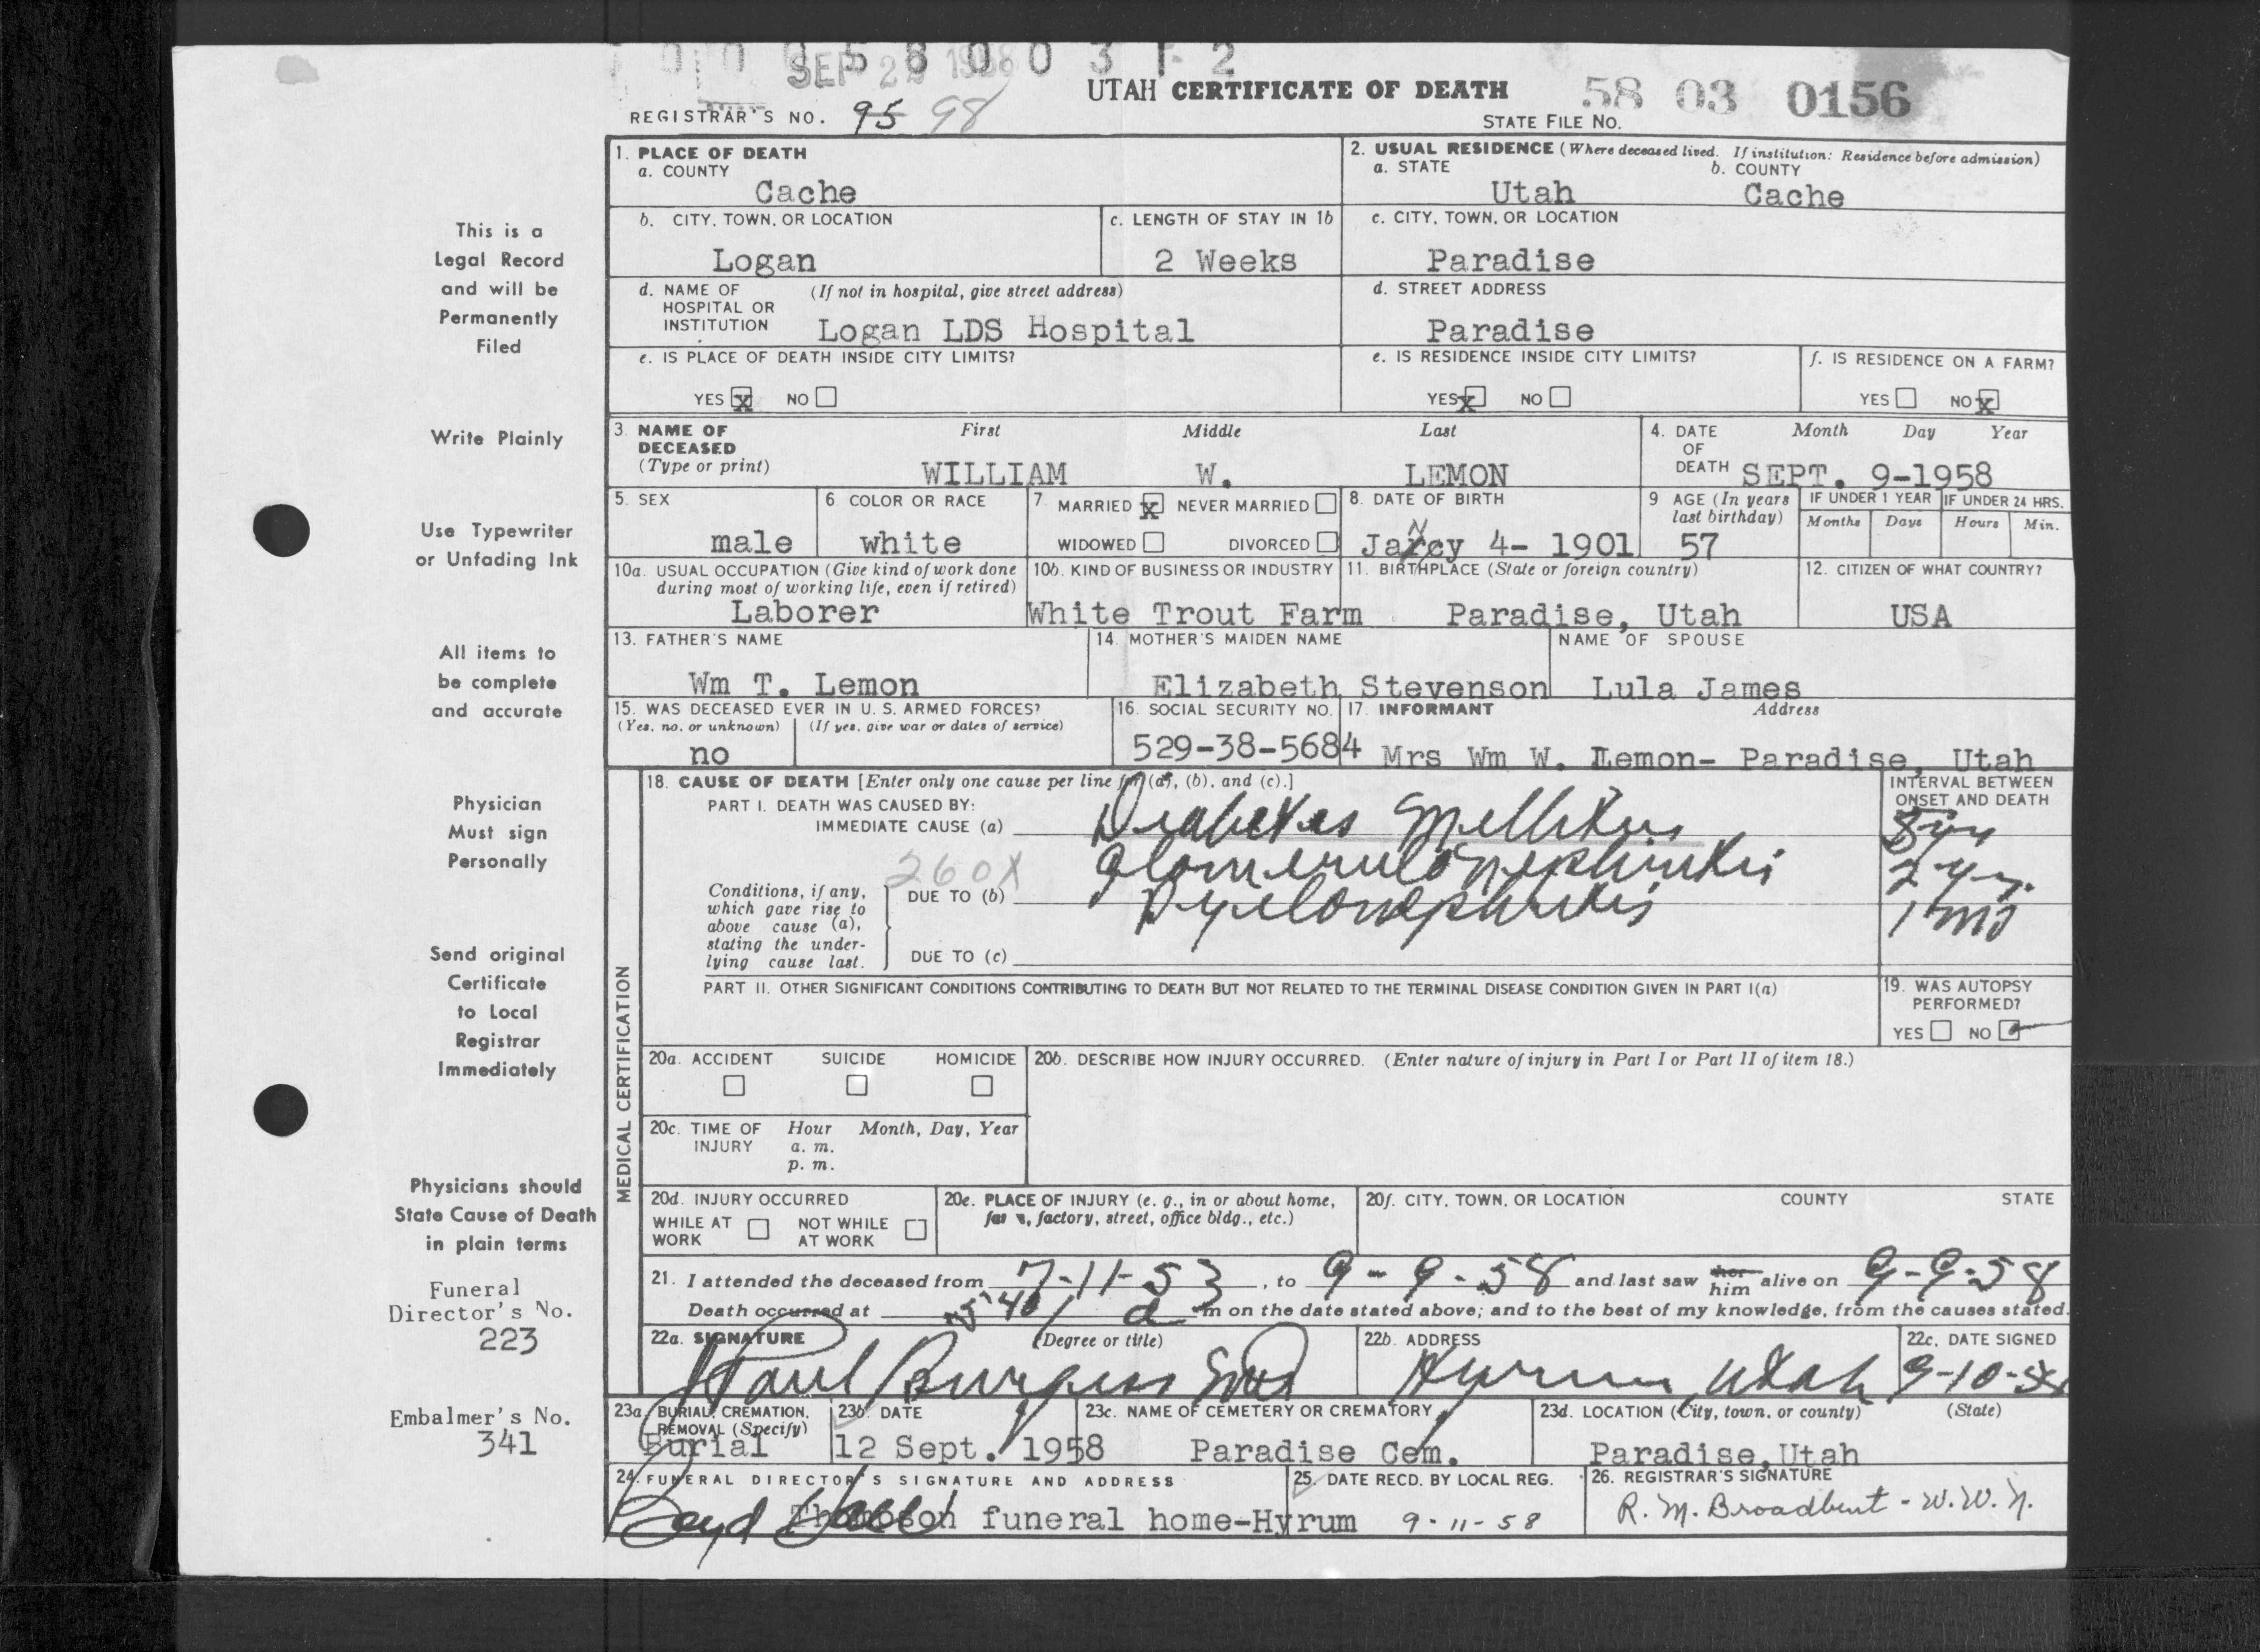 SEP 22 1958
UTAH CERTIFICATE OF DEATH
58 03 0156
REGISTRAR'S NO. 95 98
STATE FILE NO.
1. PLACE OF DEATH
a. COUNTY
Cache
2. USUAL RESIDENCE (Where deceased lived. If institution: Residence before admission)
a. STATE b. COUNTY
Utah Cache
b. CITY, TOWN, OR LOCATION
Logan
c. LENGTH OF STAY IN 1b
2 Weeks
c. CITY, TOWN, OR LOCATION
Paradise
d. NAME OF (If not in hospital, give street address)
HOSPITAL OR
INSTITUTION Logan LDS Hospital
d. STREET ADDRESS
Paradise
e. IS PLACE OF DEATH INSIDE CITY LIMITS?
YES x NO
e. IS RESIDENCE INSIDE CITY LIMITS?
YES x NO
f. IS RESIDENCE ON A FARM?
YES NO x
3. NAME OF First Middle Last
DECEASED
(Type or print) WILLIAM W. LEMON
4. DATE Month Day Year
OF
DEATH SEPT. 9-1958
5. SEX
male
6. COLOR OR RACE
white
7. MARRIED x NEVER MARRIED
WIDOWED DIVORCED
8. DATE OF BIRTH
4- 1901
9 AGE (In years
last birthday)
57
IF UNDER 1 YEAR IF UNDER 24 HRS.
Months Days Hours Min.
10a. USUAL OCCUPATION (Give kind of work done
during most of working life, even if retired)
Laborer
10b. KIND OF BUSINESS OR INDUSTRY
White Trout Farm
11. BIRTHPLACE (State or foreign country)
Paradise, Utah
12. CITIZEN OF WHAT COUNTRY?
USA
13. FATHER'S NAME
Wm T. Lemon
14. MOTHER'S MAIDEN NAME
Elizabeth Stevenson
NAME OF SPOUSE
Lula James
15. WAS DECEASED EVER IN U. S. ARMED FORCES?
(Yes, no, or unknown) (If yes, give war or dates of service)
no
16. SOCIAL SECURITY NO.
529-38-5684
17. INFORMANT Address
Mrs Wm W. Lemon- Paradise, Utah
MEDICAL CERTIFICATION
18. CAUSE OF DEATH [Enter only one cause per line for (a), (b), and (c).]
PART I. DEATH WAS CAUSED BY:
IMMEDIATE CAUSE (a) Diabetes Mellitus
260X
Glomerulonephritis
Conditions, if any,
which gave rise to
above cause (a),
stating the under-
lying cause last.
DUE TO (b) Pyelonephritis
DUE TO (c)
INTERVAL BETWEEN
ONSET AND DEATH
2 yrs.
1 mo
PART II. OTHER SIGNIFICANT CONDITIONS CONTRIBUTING TO DEATH BUT NOT RELATED TO THE TERMINAL DISEASE CONDITION GIVEN IN PART I(a)
19. WAS AUTOPSY
PERFORMED?
YES NO
20a. ACCIDENT SUICIDE HOMICIDE
20b. DESCRIBE HOW INJURY OCCURRED. (Enter nature of injury in Part I or Part II of item 18.)
20c. TIME OF Hour Month, Day, Year
INJURY a. m.
p. m.
20d. INJURY OCCURRED
WHILE AT NOT WHILE
WORK AT WORK
20e. PLACE OF INJURY (e. g., in or about home,
farm, factory, street, office bldg., etc.)
20f. CITY, TOWN, OR LOCATION COUNTY STATE
21. I attended the deceased from 7-11-53, to 9-9-58 and last saw her him alive on 9-9-58
Death occurred at a m on the date stated above; and to the best of my knowledge, from the causes stated.
22a. SIGNATURE (Degree or title)
Paul Burgess MD
22b. ADDRESS
Hyrum, Utah
22c. DATE SIGNED
9-10-58
23a. BURIAL, CREMATION,
REMOVAL (Specify)
Burial
23b. DATE
12 Sept. 1958
23c. NAME OF CEMETERY OR CREMATORY
Paradise Cem.
23d. LOCATION (City, town, or county) (State)
Paradise, Utah
24. FUNERAL DIRECTOR'S SIGNATURE AND ADDRESS
Thompson funeral home-Hyrum
25. DATE RECD. BY LOCAL REG.
9-11-58
26. REGISTRAR'S SIGNATURE
R. M. Broadbent - W.W.N.
This is a
Legal Record
and will be
Permanently
Filed
Write Plainly
Use Typewriter
or Unfading Ink
All items to
be complete
and accurate
Physician
Must sign
Personally
Send original
Certificate
to Local
Registrar
Immediately
Physicians should
State Cause of Death
in plain terms
Funeral
Director's No.
223
Embalmer's No.
341